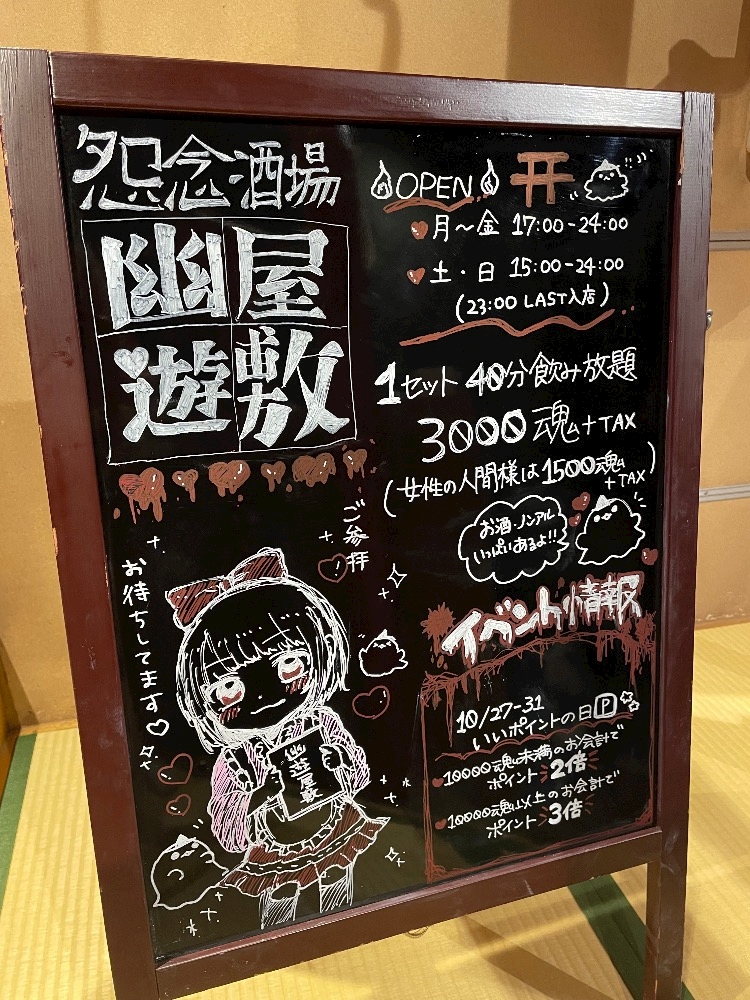 怨念酒場
幽屋
遊敷
ご参拝
お待ちしてます♡
幽遊屋敷
OPEN
月〜金 17:00-24:00
土・日 15:00-24:00
(23:00 LAST入店)
1セット 40分飲み放題
3000魂+TAX
(女性の人間様は1500魂+TAX)
お酒・ノンアル
いっぱいあるよ!!
イベント情報
10/27-31
いいポイントの日P
10000魂未満のお会計で
ポイント2倍
10000魂以上のお会計で
ポイント3倍